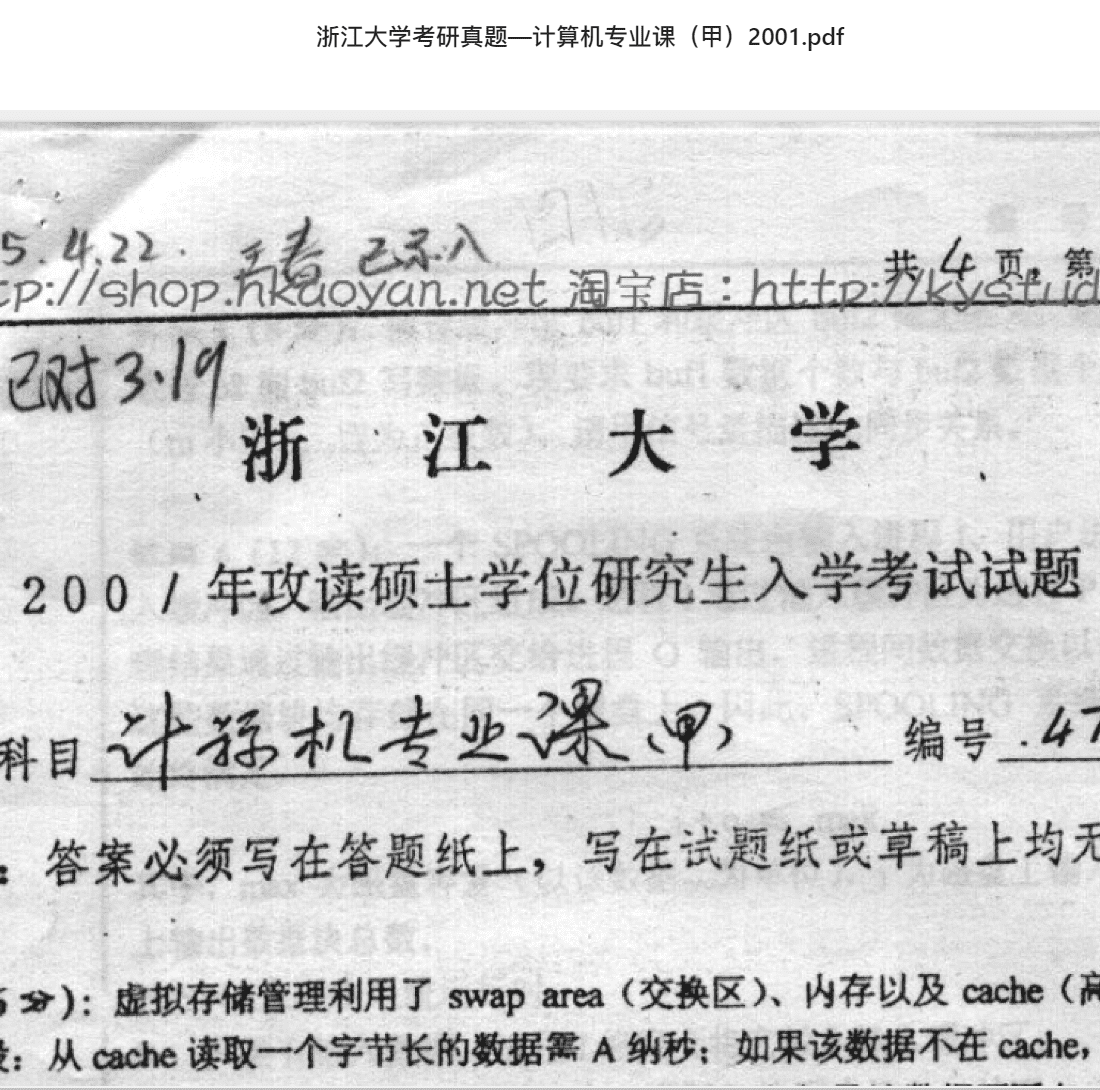 浙江大学考研真题—计算机专业课（甲）2001.pdf
5.4.22. 已录入
共 4 页，第
tp://shop.nkaoyan.net 淘宝店：http://kystud
已对 3.19
浙 江 大 学
2001年攻读硕士学位研究生入学考试试题
科目 计算机专业课（甲） 编号 .47
：答案必须写在答题纸上，写在试题纸或草稿上均无
5分)：虚拟存储管理利用了 swap area（交换区）、内存以及 cache（高
设：从 cache 读取一个字节长的数据需 A 纳秒；如果该数据不在 cache，